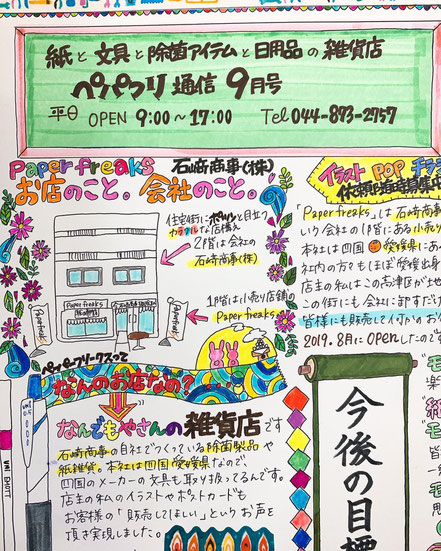 紙と文具と除菌アイテムと日用品の雑貨店
ペパフリ通信 9月号
平日 OPEN 9:00~17:00 Tel 044-873-2757
Paper freaks 石﨑商事(株)
お店のこと。会社のこと。
住宅街にポツンと目立つ
カラフルな店構え
2階は会社の
石﨑商事(株)
Paper freaks
Paperfreaks
1階は小売り店舗の
Paper freaks
ペーパーフリークスって
なんのお店なの?
なんでもやさんの雑貨店です
石﨑商事の自社でつくっている除菌製品や
紙雑貨。本社は四国愛媛県なので、
四国のメーカーの文具も取り扱ってるんです。
店主の私のイラストやポストカードも
お客様の「販売してほしい」というお声を
頂き実現しました。
イラスト POP チラシ
依頼随時募集中
「Paper freaks」は石﨑商事
いう会社の1階にある小売り
本社は四国 愛媛県にあ
社内の方々もほぼ愛媛出身
店主の私はこの高津区が土地
この街にも会社に卸すだけ
皆様にも販売して何かのお
2019.8月にOPENしたのです
今後の目標